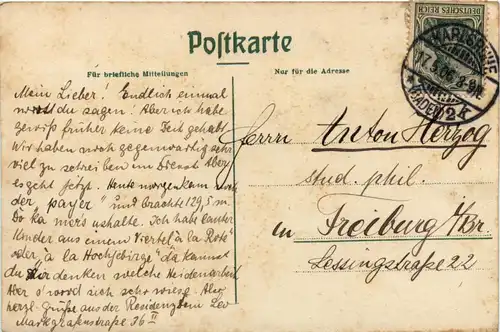 DEUTSCHES REICH
KARLSRUHE
17.5.06
(BADEN) 2k
Postkarte
Für briefliche Mitteilungen
Nur für die Adresse
Mein Lieber! Endlich einmal
du sagen! Aber ich habe
gewiß früher keine Zeit gehabt
Wir haben noch gegenwärtig sehr
viel zu schreiben im Dienst Aber
es geht jetzt. Heute morgen kam
der "payer" und brachte 129,5 M.
Do ka mers ushalte. Ich habe lauter
Kinder aus einem Viertel "à la Rote"
oder "à la Hochgebirge" da kannst
du dir denken welche Heidenarbeit
Aber s'word sich scho wiese. Also
herzl. Grüße aus der Residenz dein Leo
Markgrafenstraße 36 II
Herrn Anton Herzog
stud. phil.
in Freiburg i/Br.
Lessingstraße 22